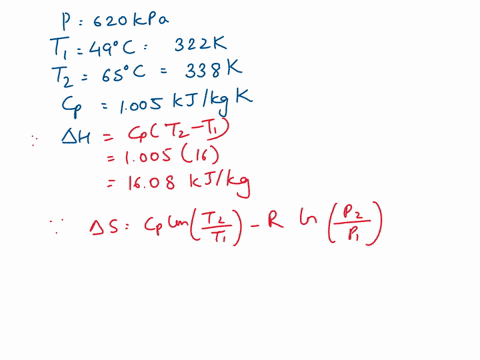 P = 620 kPa
T₁ = 49°C = 322K
T₂ = 65°C = 338K
Cp = 1.005 kJ/kg K
∵ ΔH = Cp(T₂-T₁)
= 1.005 (16)
= 16.08 kJ/kg
∵ ΔS: Cp ln(T₂/T₁) - R ln (P₂/P₁)